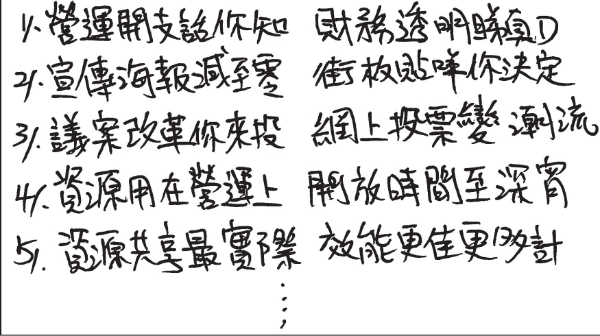 1). 營運開支話你知 財務透明睇真D
2). 宣傳海報減至零 街板貼咩你決定
3). 議案改革你來投 網上投票變潮流
4). 資源用在營運上 開放時間至深宵
5). 資源共享最實際 效能更佳更多計
⋮